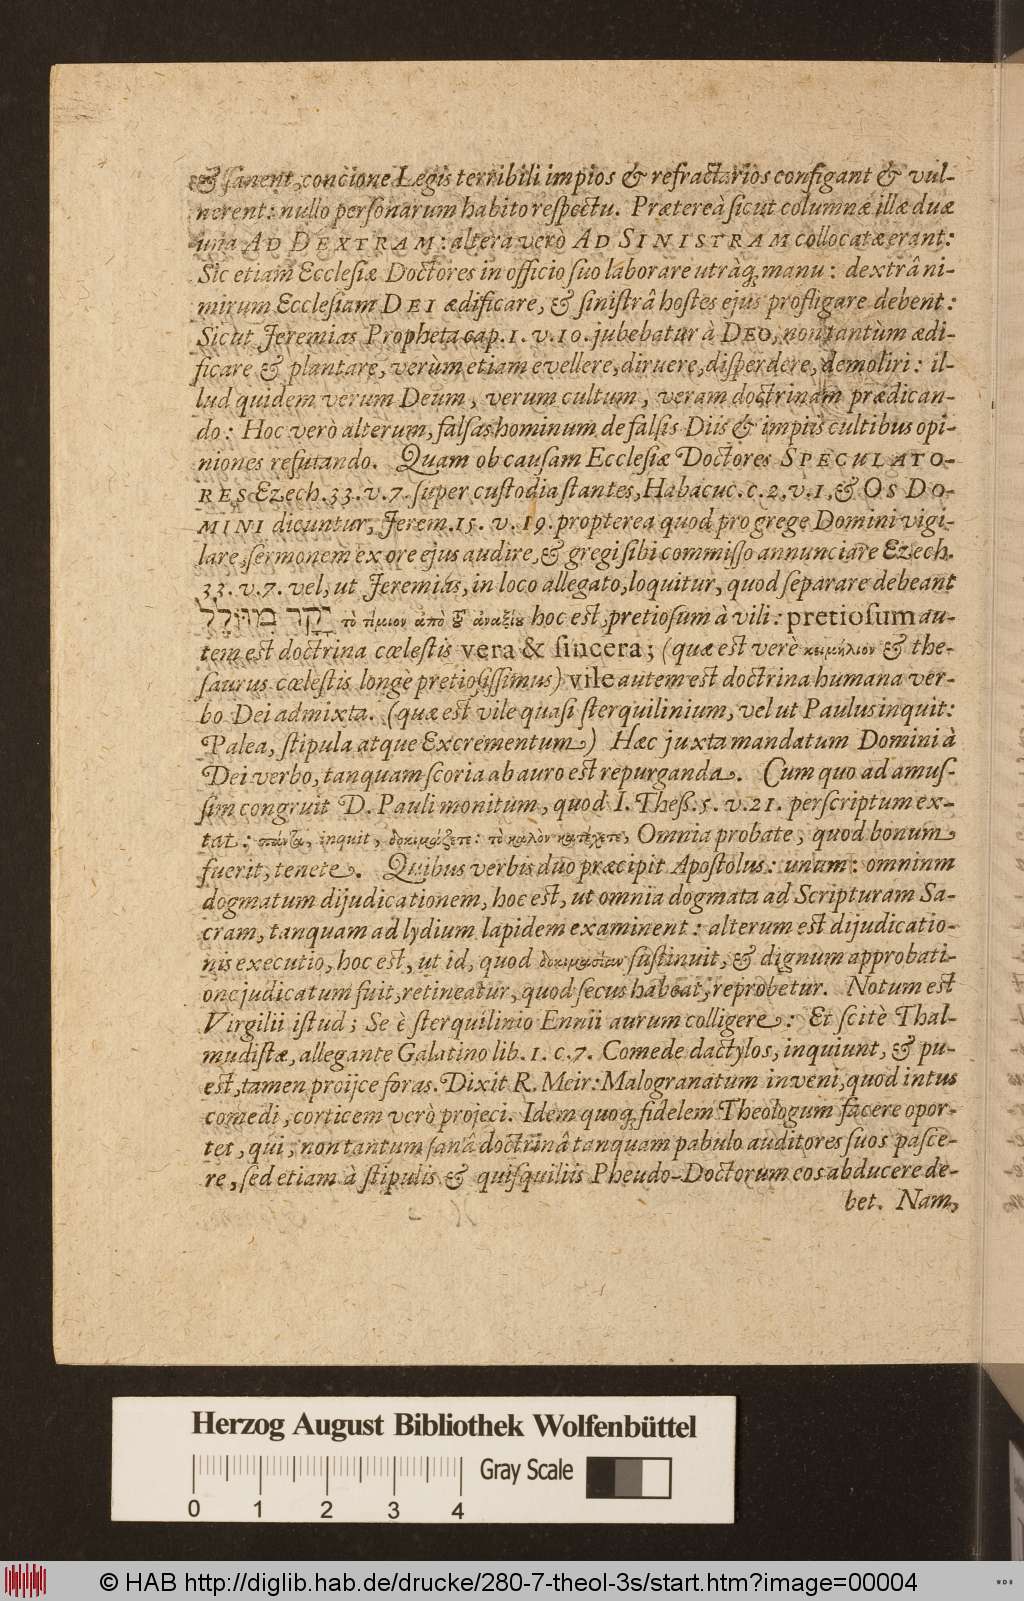 & sanent, concione Legis terribili impios & refractarios configant & vul-
nerent: nullo personarum habito respectu. Prætereà sicut columnæ illæ duæ
una AD DEXTRAM: altera verò AD SINISTRAM collocatæ erant:
Sic etiam Ecclesiæ Doctores in officio suo laborare utràq; manu: dextrâ ni-
mirum Ecclesiam DEI ædificare, & sinistrâ hostes ejus profligare debent:
Sicut Jeremias Propheta cap. 1. v. 10. jubebatur à DEO, non tantùm ædi-
ficare & plantare, verùm etiam evellere, diruere, disperdere, demoliri: il-
lud quidem verum Deum, verum cultum, veram doctrinam prædican-
do: Hoc verò alterum, falsas hominum de falsis Diis & impiis cultibus opi-
niones refutando. Quam ob causam Ecclesiæ Doctores SPECULATO-
RES Ezech. 33. v. 7. super custodia stantes, Habacuc. c. 2. v. 1, & OS DO-
MINI dicuntur, Jerem. 15. v. 19. propterea quod pro grege Domini vigi-
lare, sermonem ex ore ejus audire, & gregi sibi commisso annunciare Ezech.
33. v. 7. vel, ut Jeremias, in loco allegato, loquitur, quod separare debeant
יָקָר מִזּוֹלֵל τὸ τίμιον ἀπὸ τοῦ ἀναξίου hoc est, pretiosum à vili: pretiosum au-
tem est doctrina cœlestis vera & sincera; (quæ est verè κειμήλιον & the-
saurus cœlestis longe pretiosissimus) vile autem est doctrina humana ver-
bo Dei admixta. (quæ est vile quasi sterquilinium, vel ut Paulus inquit:
Palea, stipula atque Excrementum) Hæc juxta mandatum Domini à
Dei verbo, tanquam scoria ab auro est repurganda. Cum quo ad amus-
sim congruit D. Pauli monitum, quod I. Thess. 5. v. 21. perscriptum ex-
tat: πάντα, inquit, δοκιμάζετε: τὸ καλὸν κατέχετε, Omnia probate, quod bonum
fuerit, tenete. Quibus verbis duo præcipit Apostolus: unum: omninm
dogmatum dijudicationem, hoc est, ut omnia dogmata ad Scripturam Sa-
cram, tanquam ad lydium lapidem examinent: alterum est dijudicatio-
nis executio, hoc est, ut id, quod δοκιμασίαν sustinuit, & dignum approbati-
one judicatum fuit, retineatur, quod secus habeat, reprobetur. Notum est
Virgilii istud; Se è sterquilinio Ennii aurum colligere: Et scitè Thal-
mudistæ, allegante Galatino lib. 1. c. 7. Comede dactylos, inquiunt, & pu-
est, tamen proijce foras. Dixit R. Meir: Malogranatum inveni, quod intus
comedi, corticem verò projeci. Idem quoq; fidelem Theologum facere opor-
tet, qui, non tantum sanâ doctrinâ tanquam pabulo auditores suos pasce-
re, sed etiam à stipulis & quisquiliis Pheudo-Doctorum eos abducere de-
bet. Nam,
Herzog August Bibliothek Wolfenbüttel
Gray Scale
0 1 2 3 4
© HAB http://diglib.hab.de/drucke/280-7-theol-3s/start.htm?image=00004